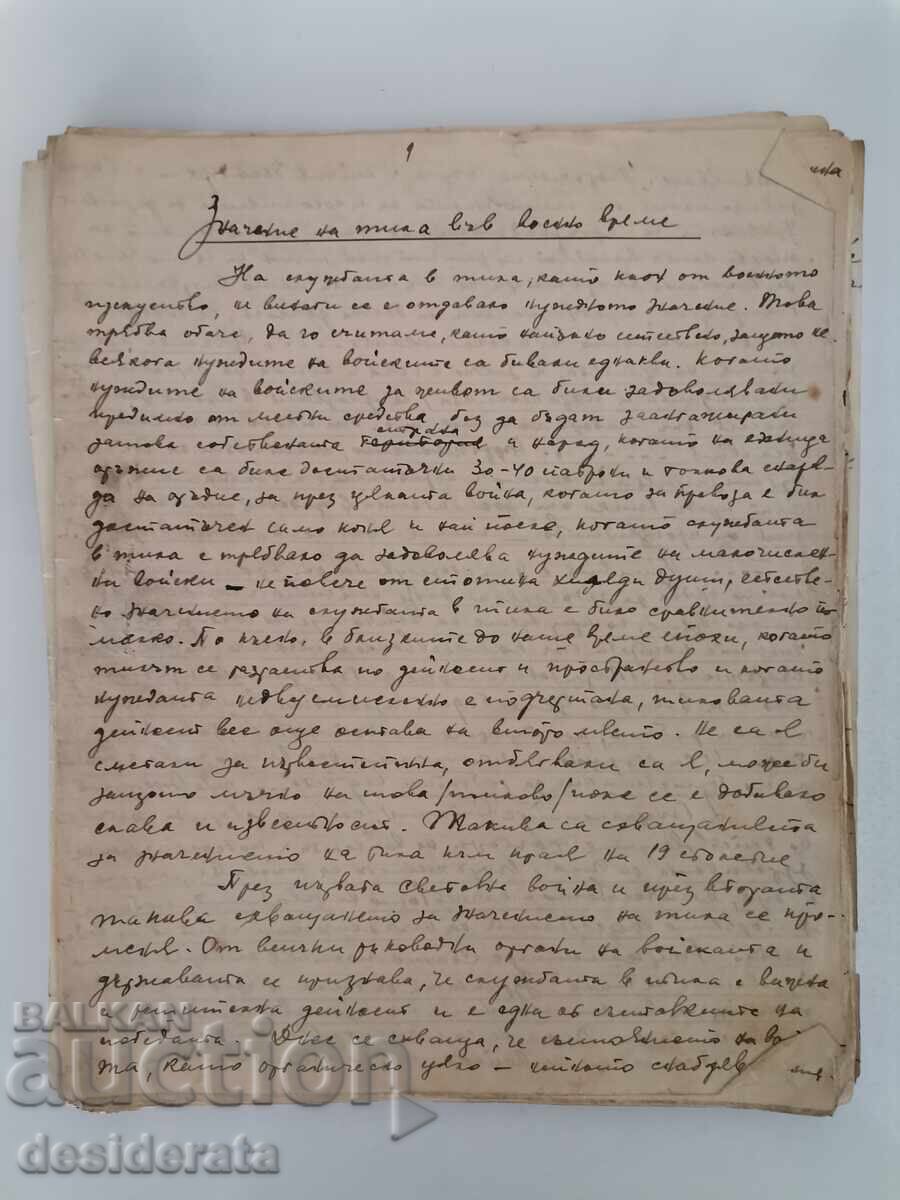 1
Значение на тила във военно време
На службата в тила, като клон от военното
изкуство, не винаги се е отдавало нужното значение. Това
трябва обаче, да го считаме, като напълно естествено, защото не
всякога нуждите на войските са бивали еднакви. Когато
нуждите на войските за живот са били задоволявани
предимно от местни средства, без да бъдат заангажирани
затова собствената територия страна и народ, когато на единица
оръжие са били достатъчни 30-40 патрони и толкова снаря-
да на оръдие, за през цялата война, когато за превоза е бил
достатъчен само коня и най после, когато службата
в тила е трябвало да задоволява нуждите на малочислен-
ни войски – не повече от стотина хиляди души, естестве-
но значението на службата в тила е било сравнително по
малко. По късно, в близките до наше време епохи, когато
тилът се разраства по дейност и пространство и когато
нуждата недвусмислено е подчертана, тиловата
дейност все още остава на второ място. Не са я
сметали за известна, отбягвали са я, може би
защото мъчно на това /тилово/ поле се е добивало
слава и известност. Такива са схващанията
за значението на тила към края на 19 столетие
През първата световна война и през втората
такива схващането за значението на тила се про-
меня. От всички ръководни органи на войската и
държавата се признава, че службата в тила е важна
и решителна дейност и е една от съставките на
победата. Днес се схваща, че
та, като органическо цяло – нейното снабдяв
BALKAN
auction
desiderata